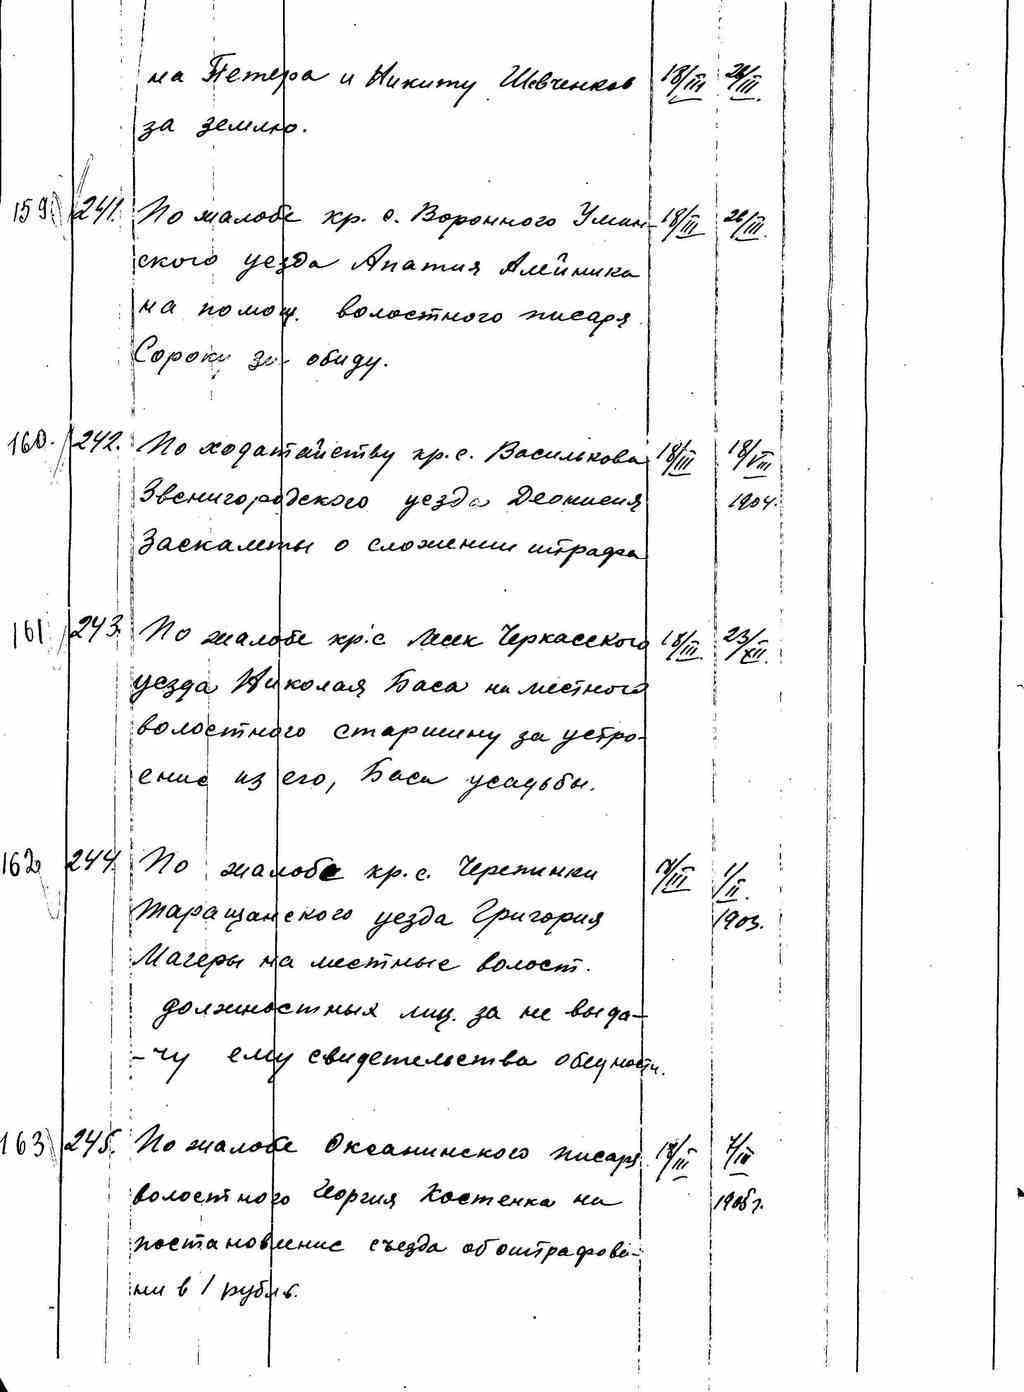 на Петера и Никиту Шевченков 18/III 26/III
за землю.
159 241. По жалобе кр. с. Воронного Уман- 18/III 26/III
ского уезда Апатия Алейника
на помощ. волостного писаря
Сороки за обиду.
160. 242. По ходатайству кр. с. Василькова 18/III 18/VIII
Звенигородского уезда Деонисия 1904.
Заскалеты о сложении штрафа
161 243. По жалобе кр. с Мек Черкасского 18/III 23/XII
уезда Николая Баса на местного
волостного старшину за устро-
ение из его, Баса усадьбы.
162 244. По жалобе кр. с. Черепинки /III 1/II
Таращанского уезда Григория 1903.
Магеры на местные волост.
должностных лиц. за не выда-
-чу ему свидетельства о бедности.
163 245. По жалобе Оксанинского писаря 18/III 7/III
волостного Георгия Костенка на 1905 г.
постановление съезда об оштрафова-
нии в 1 рубль.